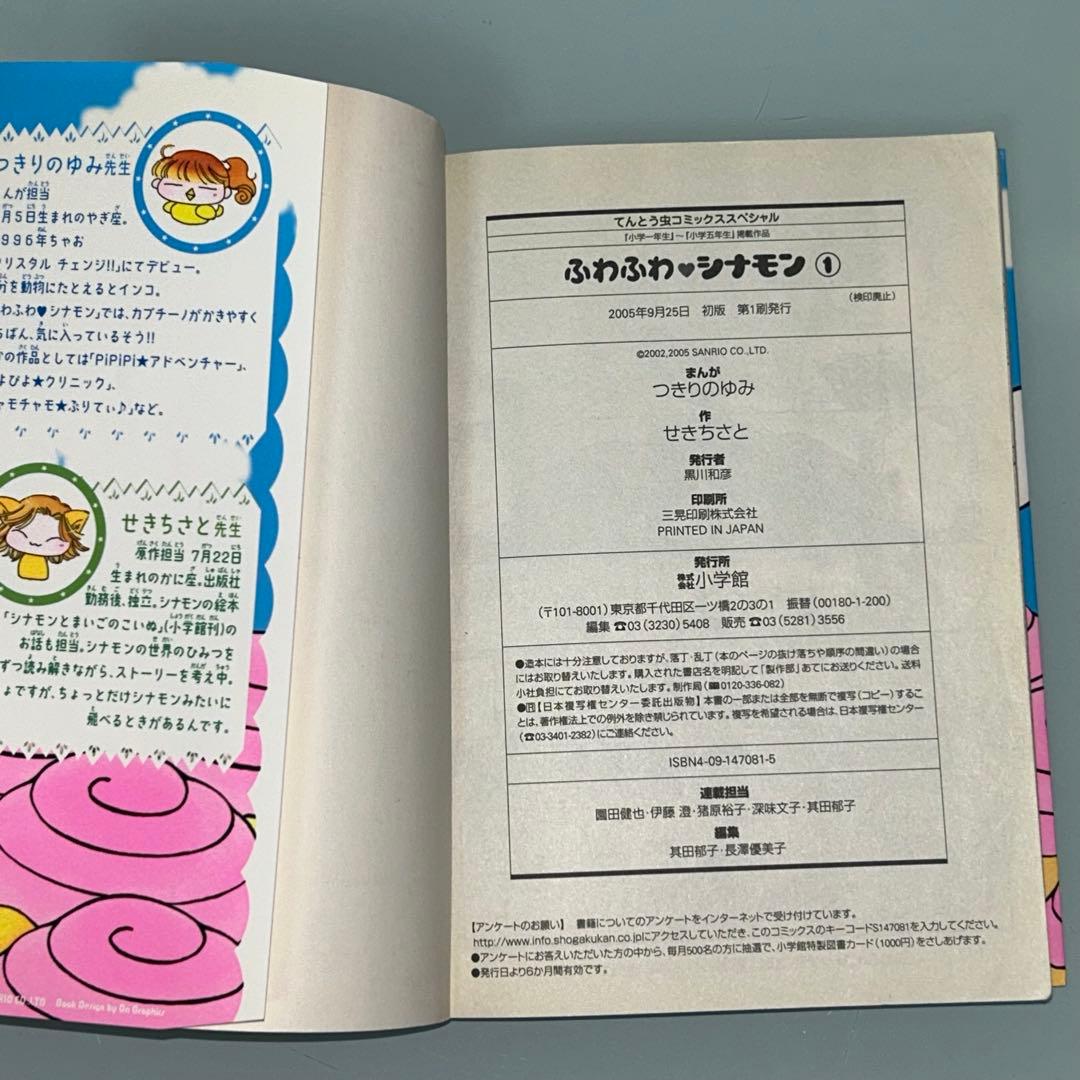 つきりのゆみ先生
んが担当
月5日生まれのやぎ座。
996年ちゃお
リスタル チェンジ!!」にてデビュー。
分を動物にたとえるとインコ。
わふわ♥シナモン」では、カプチーノがかきやすく
ちばん、気に入っているそう!!
の作品としては「PiPiPi★アドベンチャー」、
よぴよ★クリニック」、
ャモチャモ★ぷりてぃ♪」など。
せきちさと先生
原作担当 7月22日
生まれのかに座。出版社
勤務後、独立。シナモンの絵本
「シナモンとまいごのこいぬ」(小学館刊)の
お話も担当。シナモンの世界のひみつを
ずつ読み解きながら、ストーリーを考え中。
ょですが、ちょっとだけシナモンみたいに
飛べるときがあるんです。
RIO CO.,LTD Book Design by Da Graphics
てんとう虫コミックススペシャル
「小学一年生」~「小学五年生」掲載作品
ふわふわ♥シナモン①
(検印廃止)
2005年9月25日 初版 第1刷発行
©2002,2005 SANRIO CO.,LTD.
まんが
つきりのゆみ
作
せきちさと
発行者
黒川和彦
印刷所
三晃印刷株式会社
PRINTED IN JAPAN
発行所
株式会社小学館
(〒101-8001)東京都千代田区一ツ橋2の3の1 振替(00180-1-200)
編集☎03(3230)5408 販売☎03(5281)3556
●造本には十分注意しておりますが、落丁・乱丁(本のページの抜け落ちや順序の間違い)の場合
にはお取り替えいたします。購入された書店名を明記して「製作部」あてにお送りください。送料
小社負担にてお取り替えいたします。制作局(0120-336-082)
●Ⓡ【日本複写権センター委託出版物】本書の一部または全部を無断で複写(コピー)するこ
とは、著作権法上での例外を除き禁じられています。複写を希望される場合は、日本複写権センター
(☎03-3401-2382)にご連絡ください。
ISBN4-09-147081-5
連載担当
園田健也・伊藤 澄・猪原裕子・深味文子・其田郁子
編集
其田郁子・長澤優美子
【アンケートのお願い】 書籍についてのアンケートをインターネットで受け付けています。
http://www.info.shogakukan.co.jpにアクセスしていただき、このコミックスのキーコードS147081を入力してください。
●アンケートにお答えいただいた方の中から、毎月500名の方に抽選で、小学館特製図書カード(1000円)をさしあげます。
●発行日より6か月間有効です。